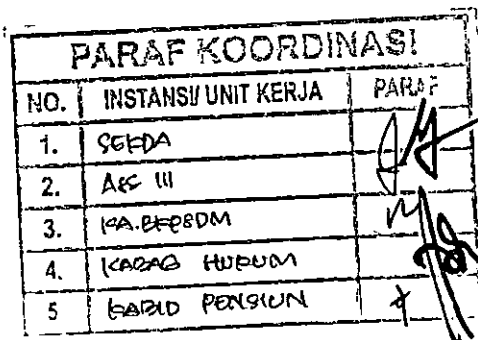 PARAF KOORDINASI
NO. INSTANSI/ UNIT KERJA PARAF
1. SEKDA
2. ASS III
3. KA.BKPSDM
4. KABAG HUKUM
5 KABID PENSIUN